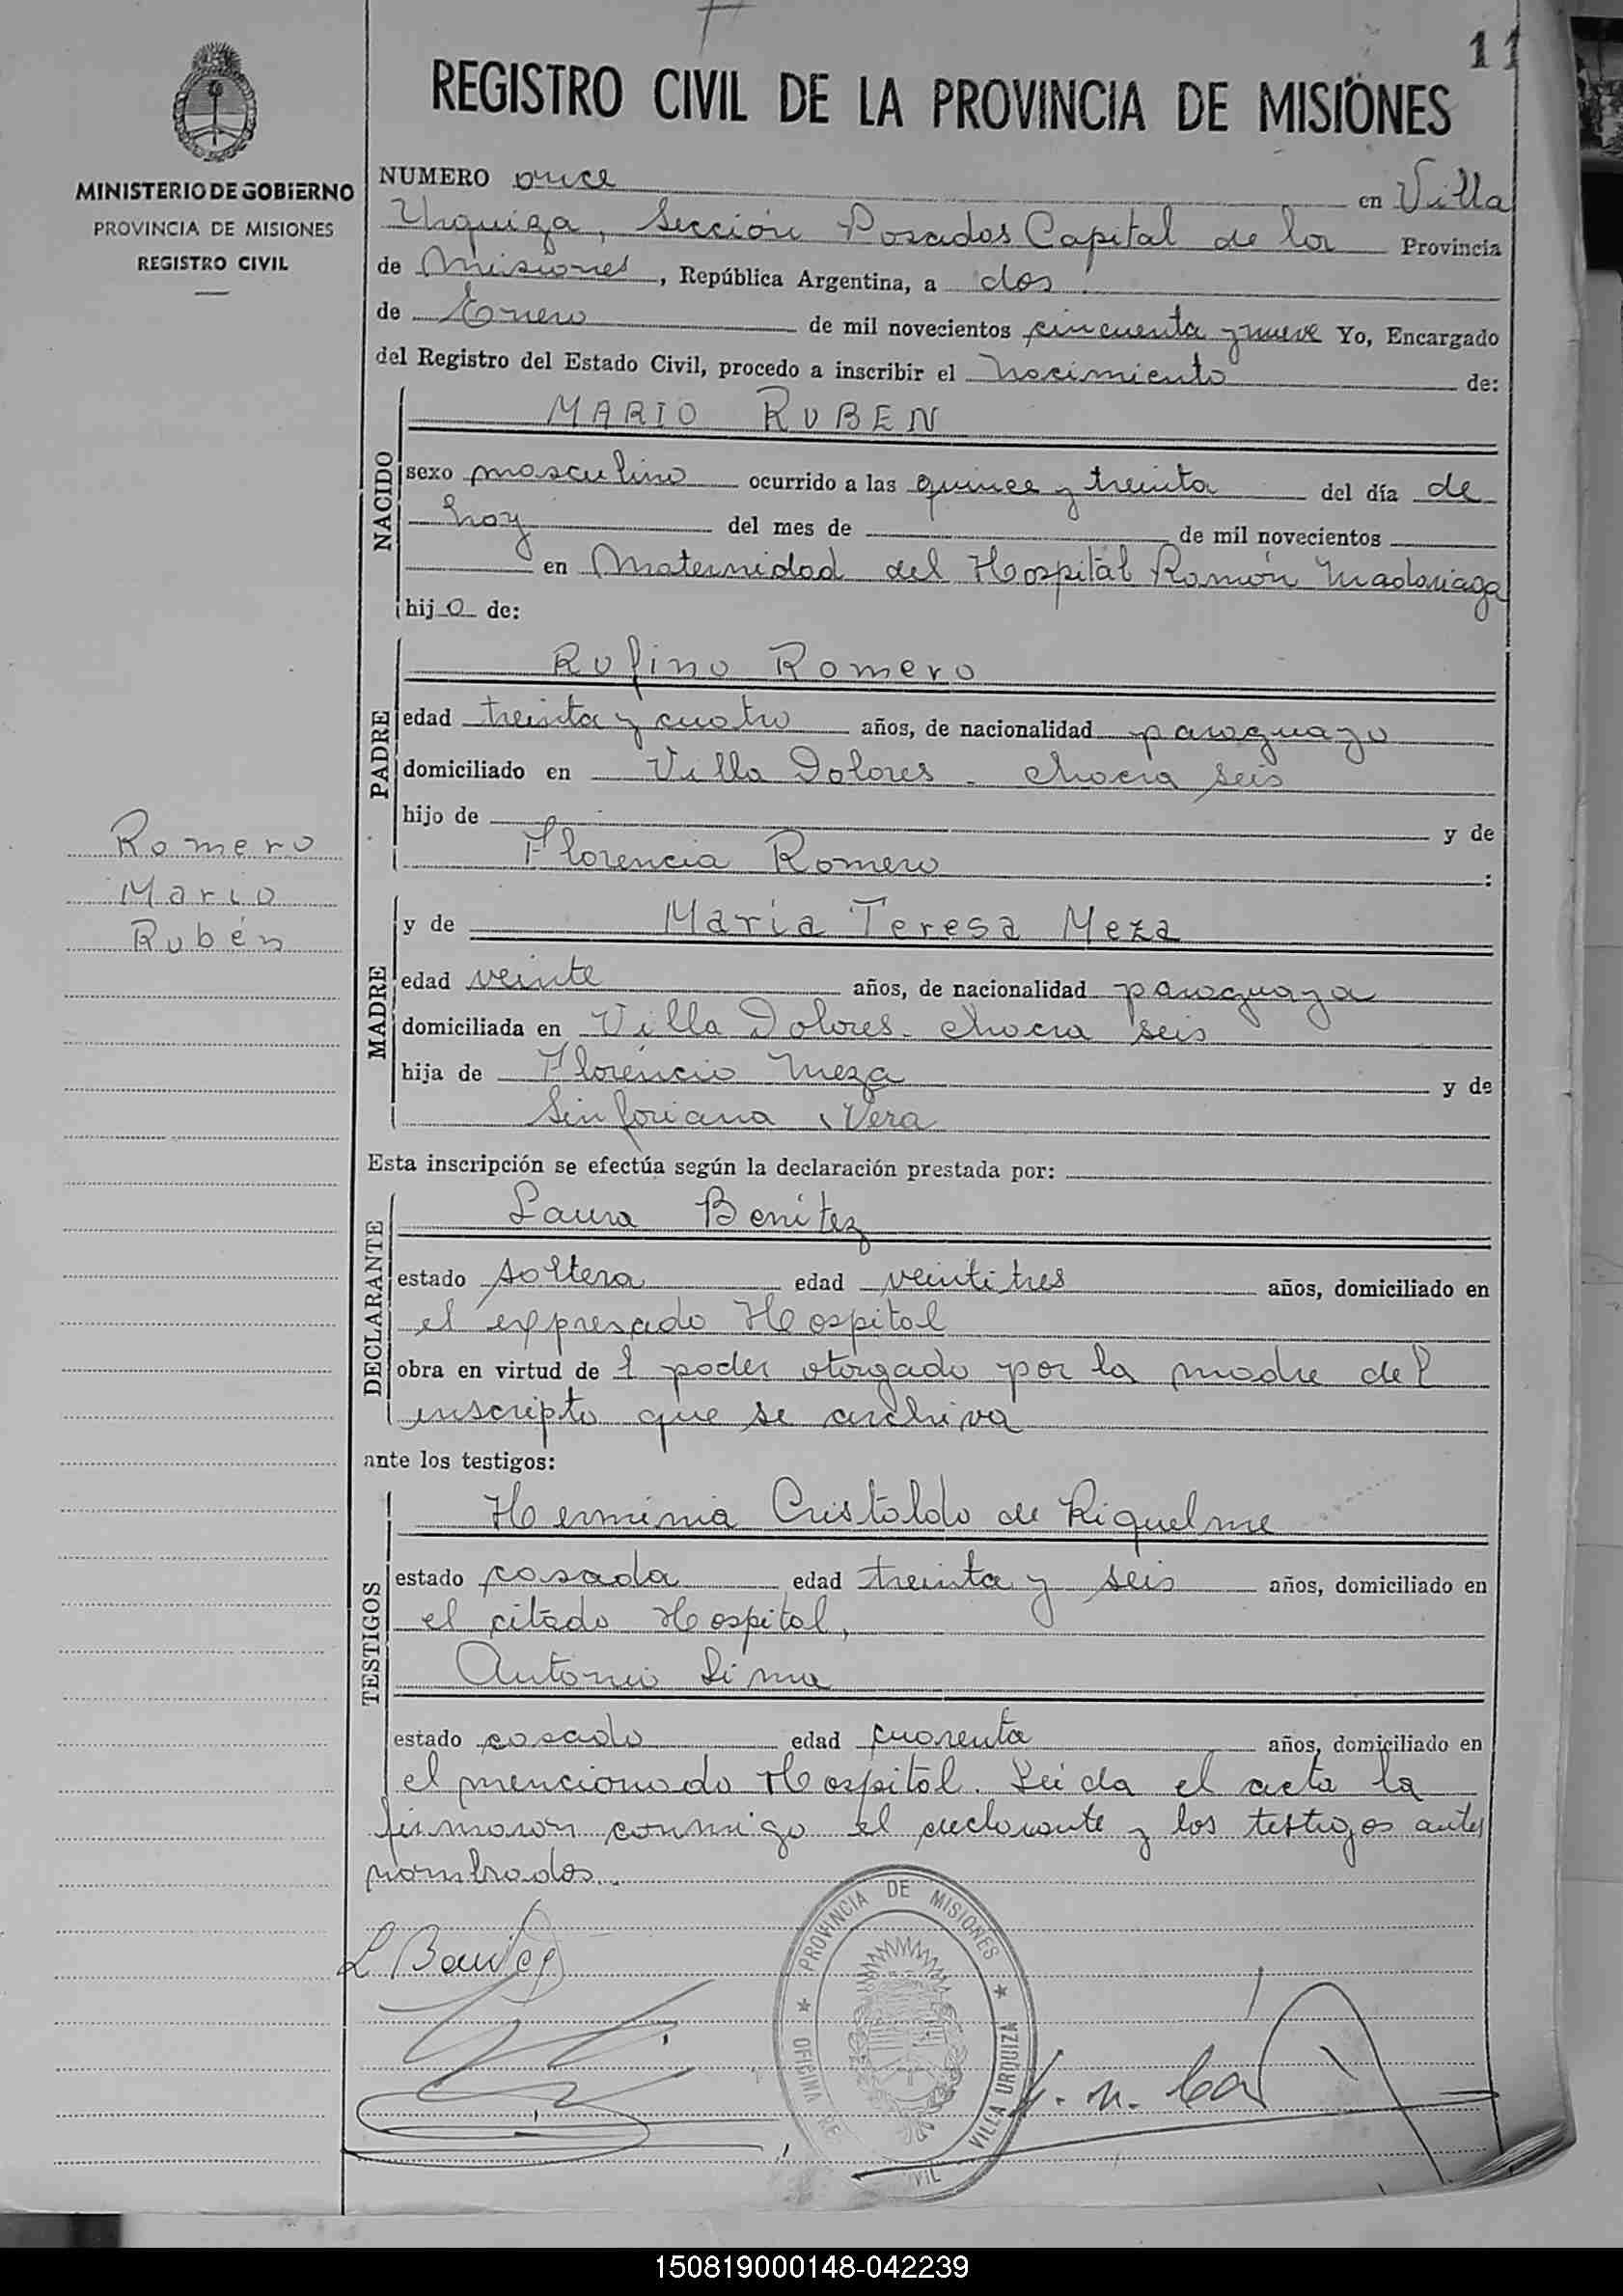 11
REGISTRO CIVIL DE LA PROVINCIA DE MISIONES
MINISTERIO DE GOBIERNO
PROVINCIA DE MISIONES
REGISTRO CIVIL
NUMERO once en Villa
Urquiza, Sección Posadas Capital de la Provincia
de Misiones, República Argentina, a dos
de Enero de mil novecientos cincuenta y nueve Yo, Encargado
del Registro del Estado Civil, procedo a inscribir el Nacimiento de:
NACIDO
MARIO RUBEN
sexo masculino ocurrido a las quince y treinta del día de
hoy del mes de de mil novecientos
en Maternidad del Hospital Ramón Madariaga
hijo de:
PADRE
Rufino Romero
edad treinta y cuatro años, de nacionalidad paraguayo
domiciliado en Villa Dolores - chacra seis
hijo de y de
Florencia Romero :
Romero
Mario
Rubén
MADRE
y de María Teresa Meza
edad veinte años, de nacionalidad paraguaya
domiciliada en Villa Dolores - chacra seis
hija de Florencio Meza y de
Sinforiana Vera
Esta inscripción se efectúa según la declaración prestada por:
DECLARANTE
Laura Benitez
estado soltera edad veintitres años, domiciliado en
el expresado Hospital
obra en virtud de l poder otorgado por la madre del
inscripto que se archiva
ante los testigos:
TESTIGOS
Herminia Cristaldo de Riquelme
estado casada edad treinta y seis años, domiciliado en
el citado Hospital,
Antonio Lima
estado casado edad cuarenta años, domiciliado en
el mencionado Hospital. Leída el acta la
firmaron conmigo el declarante y los testigos antes
nombrados.
L Benitez
PROVINCIA DE MISIONES
OFICINA DE
CIVIL
VILLA URQUIZA
150819000148-042239